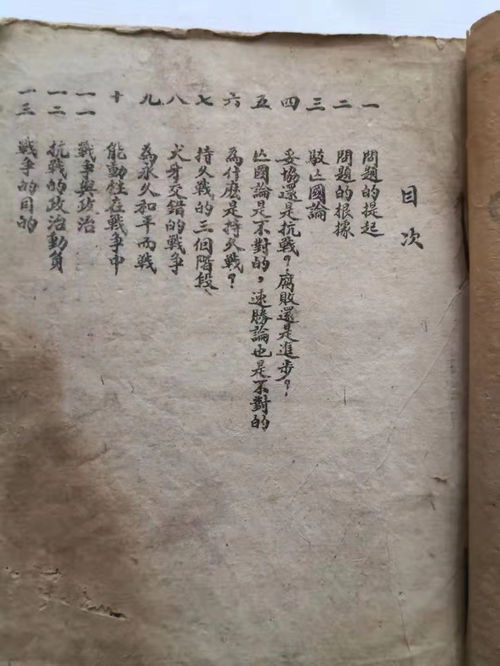 目次
一 問題的提起
二 問題的根據
三 駁亡國論
四 妥協還是抗戰？腐敗還是進步？
五 亡國論是不對的，速勝論也是不對的
六 為什麼是持久戰？
七 持久戰的三個階段
八 犬牙交錯的戰爭
九 為永久和平而戰
十 能動性在戰爭中
一一 戰爭與政治
一二 抗戰的政治動員
一三 戰爭的目的